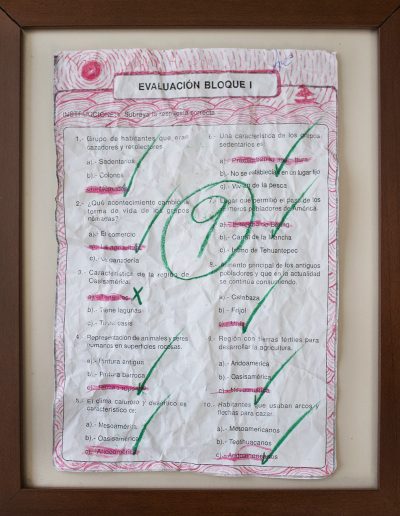 EVALUACIÓN BLOQUE I
INSTRUCCIONES: Subraya la respuesta correcta
1.- Grupo de habitantes que eran
cazadores y recolectores.
a).- Sedentarios
b).- Colonos
2.- ¿Qué acontecimiento cambió la
forma de vida de los grupos
nómadas?
a).- El comercio
b).- La agricultura
c).- La ganadería
3.- Característica de la región de
Oasisamérica:
b).- Tiene lagunas
c).- Tuvo oasis
4.- Representación de animales y seres
humanos en superficies rocosas.
a).- Pintura antigua
b).- Pintura barroca
c).- Pintura rupestre
5.- El clima caluroso y desértico es
característico de:
a).- Mesoamérica
b).- Oasisamérica
c).- Aridoamérica
6.- Una característica de los grupos
sedentarios es:
b).- No se establecían en un lugar fijo
c).- Vivían de la pesca
7.- Lugar que permitió el paso de los
primeros pobladores de América.
a).- Estrecho de Bering
b).- Canal de la Mancha
c).- Istmo de Tehuantepec
8.- Alimento principal de los antiguos
pobladores y que en la actualidad
se continúa consumiendo.
a).- Calabaza
b).- Frijol
c).- Maíz
9.- Región con tierras fértiles para
desarrollar la agricultura.
a).- Aridoamérica
b).- Oasisamérica
c).- Mesoamérica
10.- Habitantes que usaban arcos y
flechas para cazar.
a).- Mesoamericanos
b).- Teotihuacanos
c).- Aridoamericanos
9